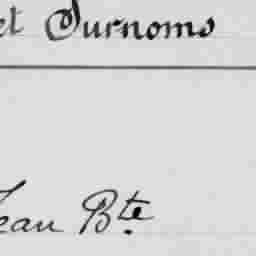 et Surnoms
Jean Bte